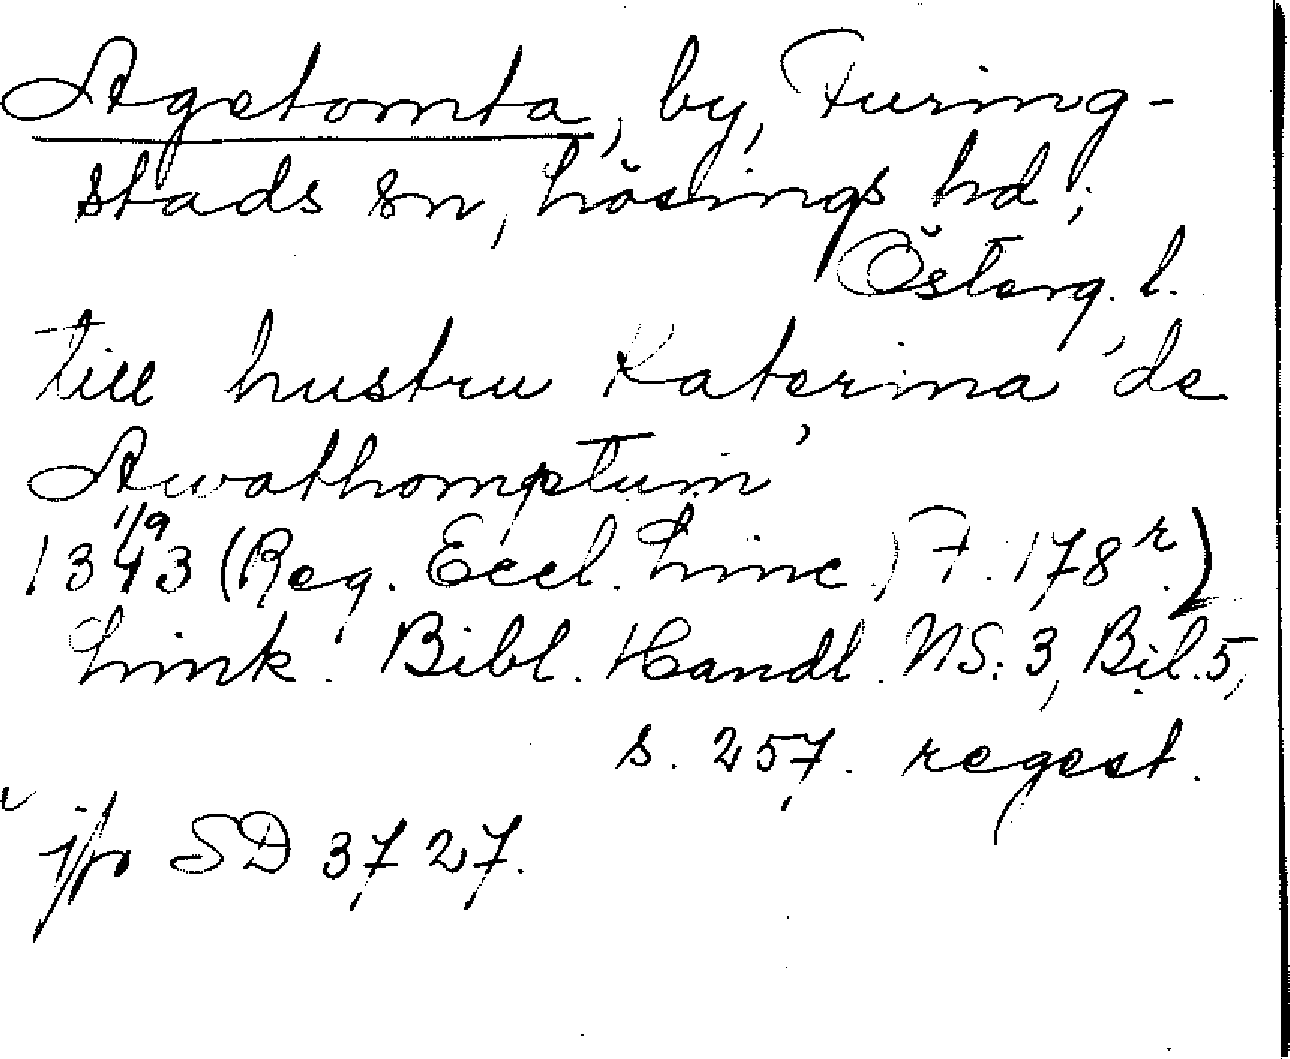 Agetomta, by, Furing-
stads sn, Lösings hd,
Österg. l.
till hustru Katerina 'de
Awathomptum'
1/9
1343 (Reg. Eccl. Linc., F. 178 r.)
Link. Bibl. Handl. NS: 3, Bil. 5,
s. 257. regest.
jfr SD 3727.